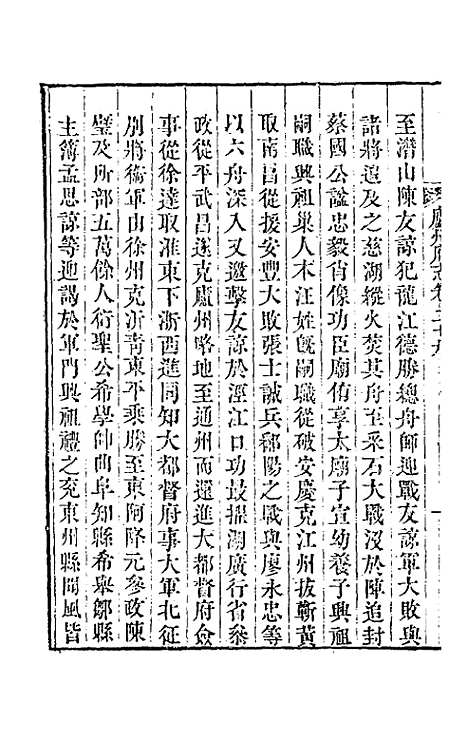 廬州府志卷三十九
至潛山陳友諒犯龍江德勝總舟師迎戰友諒軍大敗與
諸將追及之慈湖縱火焚其舟至采石大戰沒於陣追封
蔡國公諡忠毅肖像功臣廟侑享太廟子宣幼養子興祖
嗣職興祖巢人本汪姓旣嗣職從破安慶克江州拔蘄黃
取南昌從援安豐大敗張士誠兵鄱陽之戰與廖永忠等
以六舟深入又邀擊友諒於涇江口功最擢湖廣行省參
政從平武昌遂克廬州略地至通州而還進大都督府僉
事從徐達取淮東下浙西進同知大都督府事大軍北征
別將衞軍由徐州克沂靑東平乘勝至東阿降元參政陳
璧及所部五萬餘人衍聖公希學帥曲阜知縣希舉鄒縣
主簿孟思諒等迎謁於軍門興祖禮之兗東州縣聞風皆